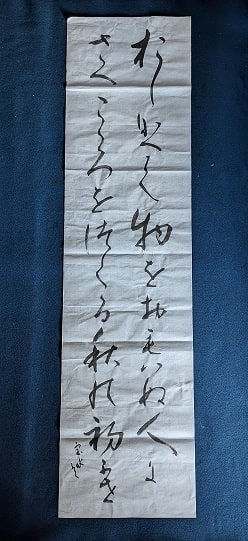 おしなへて物をおもはぬ人に
さへこゝろをつくる秋の初かせ